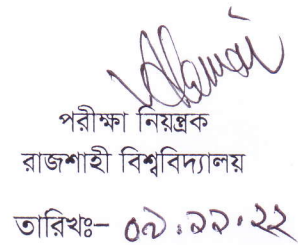 পরীক্ষা নিয়ন্ত্রক
রাজশাহী বিশ্ববিদ্যালয়
তারিখঃ– ০৯.১১.২২